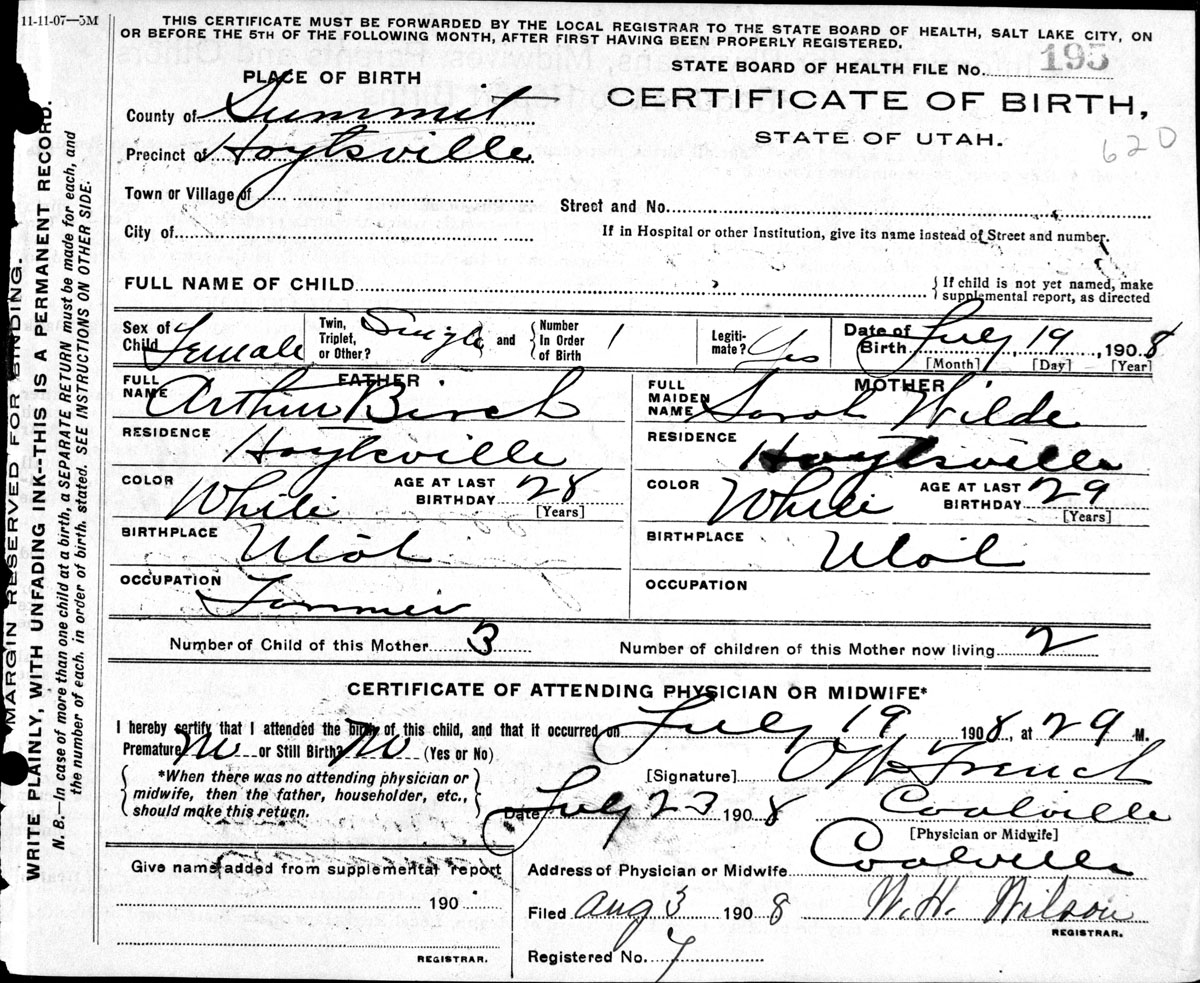 11-11-07—5M
THIS CERTIFICATE MUST BE FORWARDED BY THE LOCAL REGISTRAR TO THE STATE BOARD OF HEALTH, SALT LAKE CITY, ON
OR BEFORE THE 5TH OF THE FOLLOWING MONTH, AFTER FIRST HAVING BEEN PROPERLY REGISTERED.
MARGIN RESERVED FOR BINDING.
WRITE PLAINLY, WITH UNFADING INK--THIS IS A PERMANENT RECORD.
N. B.—In case of more than one child at a birth, a SEPARATE RETURN must be made for each, and
the number of each, in order of birth, stated. SEE INSTRUCTIONS ON OTHER SIDE.
STATE BOARD OF HEALTH FILE No. 195
PLACE OF BIRTH
CERTIFICATE OF BIRTH,
STATE OF UTAH.
620
County of Summit
Precinct of Hoytsville
Town or Village of
Street and No.
City of
If in Hospital or other Institution, give its name instead of Street and number.
FULL NAME OF CHILD
If child is not yet named, make
supplemental report, as directed
Sex of Child Female Twin, Triplet, or Other? Single and Number In Order of Birth 1 Legitimate? Yes Date of Birth July 19, 1908
[Month] [Day] [Year]
FATHER
FULL NAME Arthur Birch
RESIDENCE Hoytsville
COLOR White AGE AT LAST BIRTHDAY 28
[Years]
BIRTHPLACE Utah
OCCUPATION Farmer
MOTHER
FULL MAIDEN NAME Sarah Wilde
RESIDENCE Hoytsville
COLOR White AGE AT LAST BIRTHDAY 29
[Years]
BIRTHPLACE Utah
OCCUPATION
Number of Child of this Mother 3 Number of children of this Mother now living 2
CERTIFICATE OF ATTENDING PHYSICIAN OR MIDWIFE*
I hereby certify that I attended the birth of this child, and that it occurred on July 19 1908, at M.
Premature No or Still Birth? No (Yes or No)
*When there was no attending physician or
midwife, then the father, householder, etc.,
should make this return.
[Signature] French
Date July 23 1908 Coalville
[Physician or Midwife]
Address of Physician or Midwife Coalville
Give name added from supplemental report
190
REGISTRAR.
Filed Aug 3 1908 W. H. Wilson
REGISTRAR.
Registered No. 7